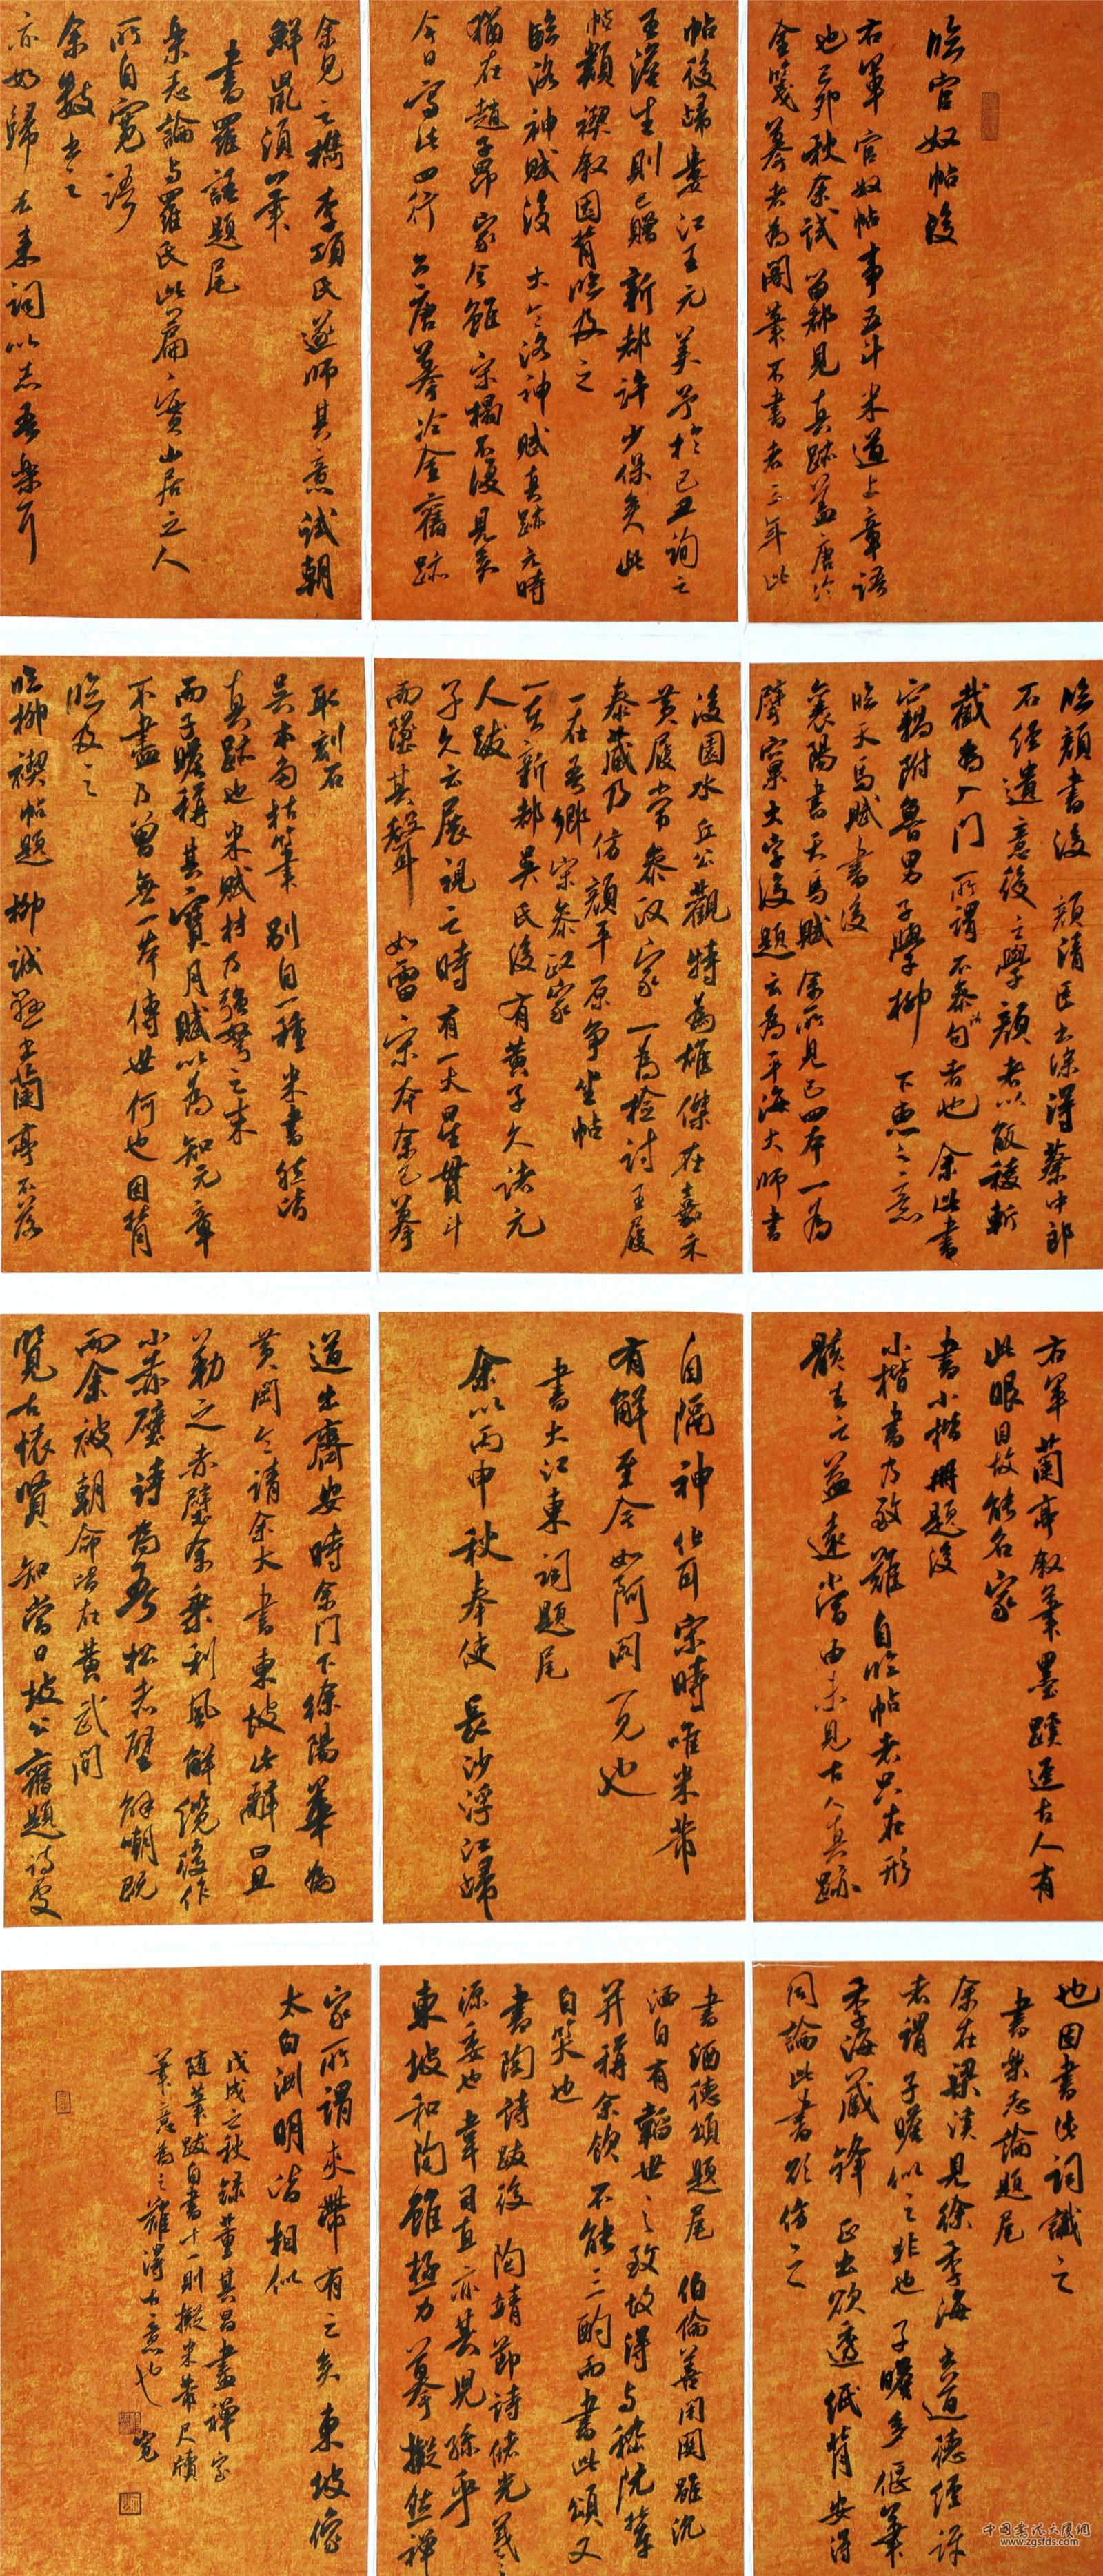 臨官奴帖後
右軍官奴帖事五斗米道上章語
也己卯秋余試留都見真跡蓋唐冷
金箋摹者為閣筆不書者三年此
帖後歸婁江王元美予於己丑詢之
王澹生則已贈新都許少保矣此
帖類禊敘因背臨及之
臨洛神賦後 大令洛神賦真跡元時
猶在趙子昂家今雖宋榻不復見矣
今日寫此四行亦唐摹冷金舊跡
余見之檇李項氏遂師其意試朝
鮮鼠須筆
書羅語題尾
樂志論與羅氏此篇寔山居之人
所自寬語
余數書之
亦如歸去來詞以志吾樂耳
臨顏書後 顏清臣書深得蔡中郎
石經遺意後之學顏者以觚稜斬
截為入門所謂不參句者也余此書
竊附魯男子學柳下惠之意
臨天馬賦書後
襄陽書天馬賦余所見已四本一為
擘窠大字後題云為平海大師書
後園水丘公觀特為雄傑在嘉禾
黃履常參政家一為檢討王履
泰藏乃仿顏平原爭坐帖
一在吾鄉宋參政家
一在新都吳氏後有黃子久諸元
人跋
子久云展視之時有一大星貫斗
而墜其聲如雷宋本余已摹
取刻石
吳本多枯筆別自一種米書然皆
真跡也米賦材乃強弩之末
而子瞻稱其寶月賦以為知元章
不盡乃曾無一本傳世何也因背
臨及之
臨柳禊帖題 柳誠懸書蘭亭不落
右軍蘭亭敘筆墨蹊逕古人有
此眼目故能名家
書小楷冊題後
小楷書乃致難自臨帖者只在形
骸去之益遠當由未見古人真跡
自隔神化耳宋時唯米芾
有解至今如阿閦一見也
書大江東詞題尾
余以丙申秋奉使長沙浮江歸
道出齊安時余門下徐陽華為
黃岡令請余大書東坡此辭曰且
勒之赤壁余乘利風解纜後作
小赤壁詩為吾松赤壁解嘲既
而余被朝命皆在黃武間
覽古懷賢知當日坡公舊題詩處
也因書此詞識之
書樂志論題尾
余在梁溪見徐季海書道德經評
者謂子瞻似之非也子瞻多偃筆
季海藏鋒正書欲透紙背安得
同論此書欲仿之
書酒德頌題尾 伯倫善閉關雖沉
酒自有韜世之致故得與嵇阮輩
並稱余飲不能三酌而書此頌又
自笑也
書陶詩跋後 陶靖節詩儲光羲之
源委也韋司直亦其兒孫乎
東坡和陶雖極力摹擬然禪
家所謂夾帶有之矣東坡儘
太白淵明皆相似
戊戌之秋錄董其昌畫禪室
隨筆跋自書十一則擬米芾尺牘
筆意為之難得古意也 寬
中国书法大厦网
www.zgsfds.com